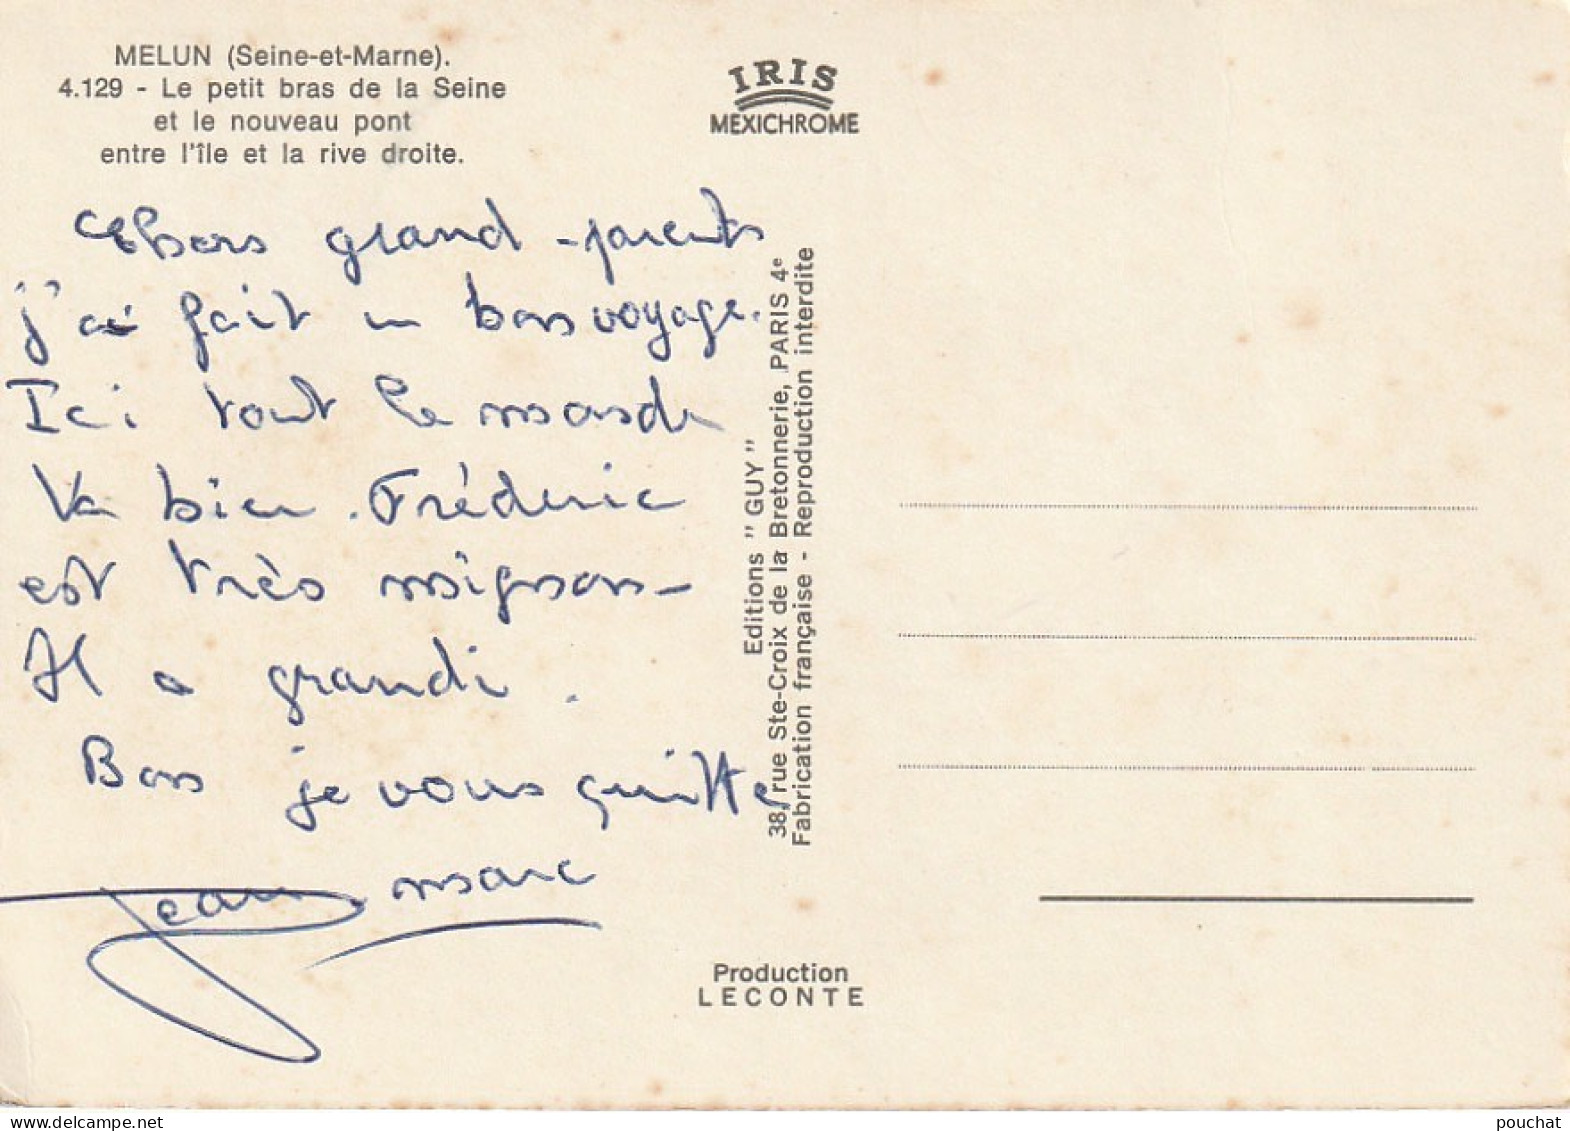 MELUN (Seine-et-Marne).
4.129 - Le petit bras de la Seine
et le nouveau pont
entre l'île et la rive droite.
IRIS
MEXICHROME
Chers grand-parents
j'ai fait un bon voyage.
Ici tout le monde
Va bien. Fréderic
est très mignon-
Il a grandi.
Bon je vous quitte
Jean marc
Editions "GUY"
38, rue Ste-Croix de la Bretonnerie, PARIS 4e
Fabrication française - Reproduction interdite
Production
LECONTE
delcampe.net
pouchat